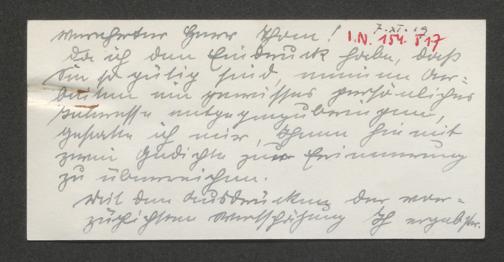 7. XI. 19
I.N. 154.817
Verehrter Herr Thom!
Da ich den Eindruck habe, daß
Sie so gütig sind, meinen Ar-
beiten ein gewisses persönliches
Interesse entgegenzubringen,
gestatte ich mir, Ihnen hiemit
zwei Gedichte zur Erinnerung
zu überreichen.
Mit dem Ausdrucke der vor-
züglichsten Wertschätzung Ih ergebster.